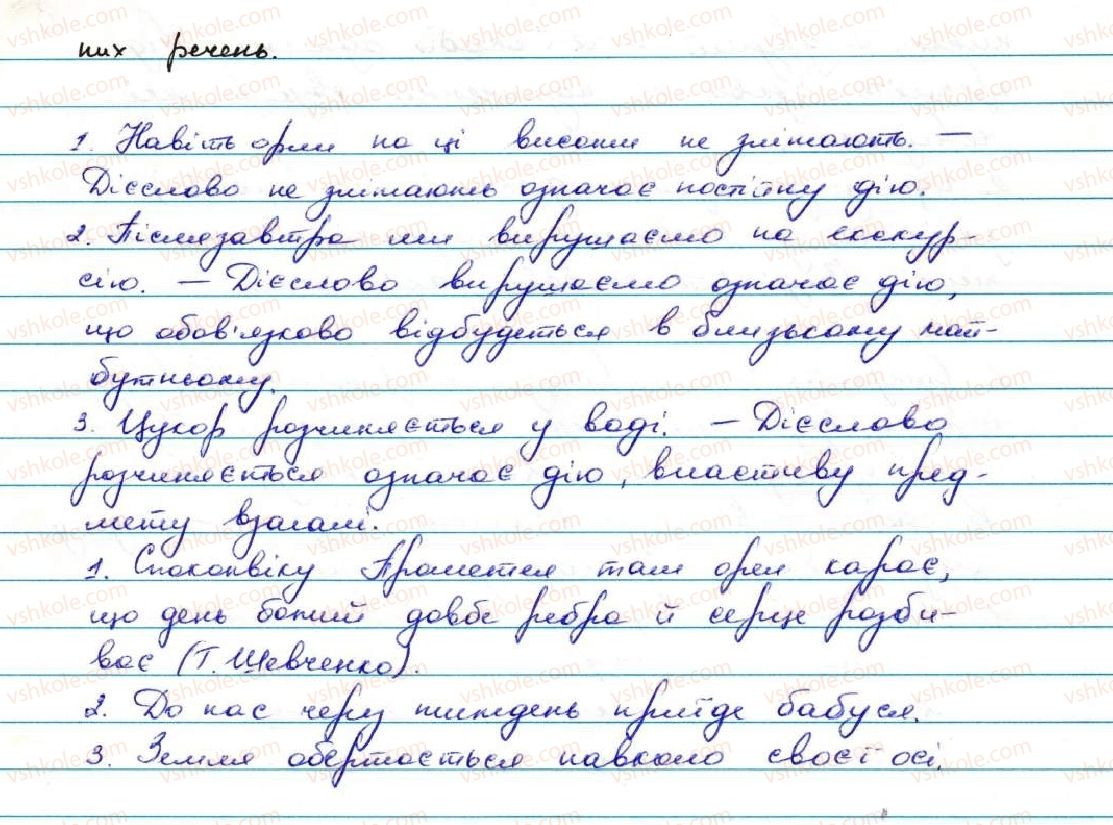 них речень.
1. Навіть орли на ці висоти не злітають. —
Дієслово не злітають означає постійну дію.
2. Післязавтра ми вирушаємо на екскур-
сію. — Дієслово вирушаємо означає дію,
що обов'язково відбудеться в близькому май-
бутньому.
3. Цукор розчиняється у воді. — Дієслово
розчиняється означає дію, властиву пред-
мету взагалі.
1. Споконвіку Прометея там орел карає,
що день божий довбе ребра й серце розби-
ває (Т. Шевченко).
2. До нас через тиждень приїде бабуся.
3. Земля обертається навколо своєї осі.